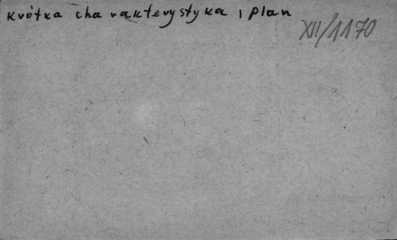 Krótka charakterystyka i plan
XII/1170